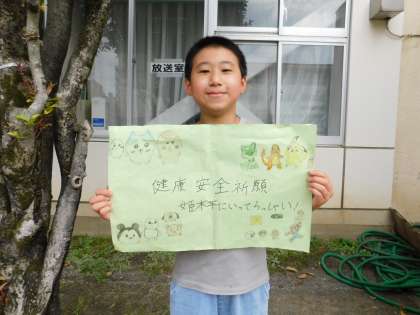 放送室
健康安全祈願
姫木平にいってらっしゃい！